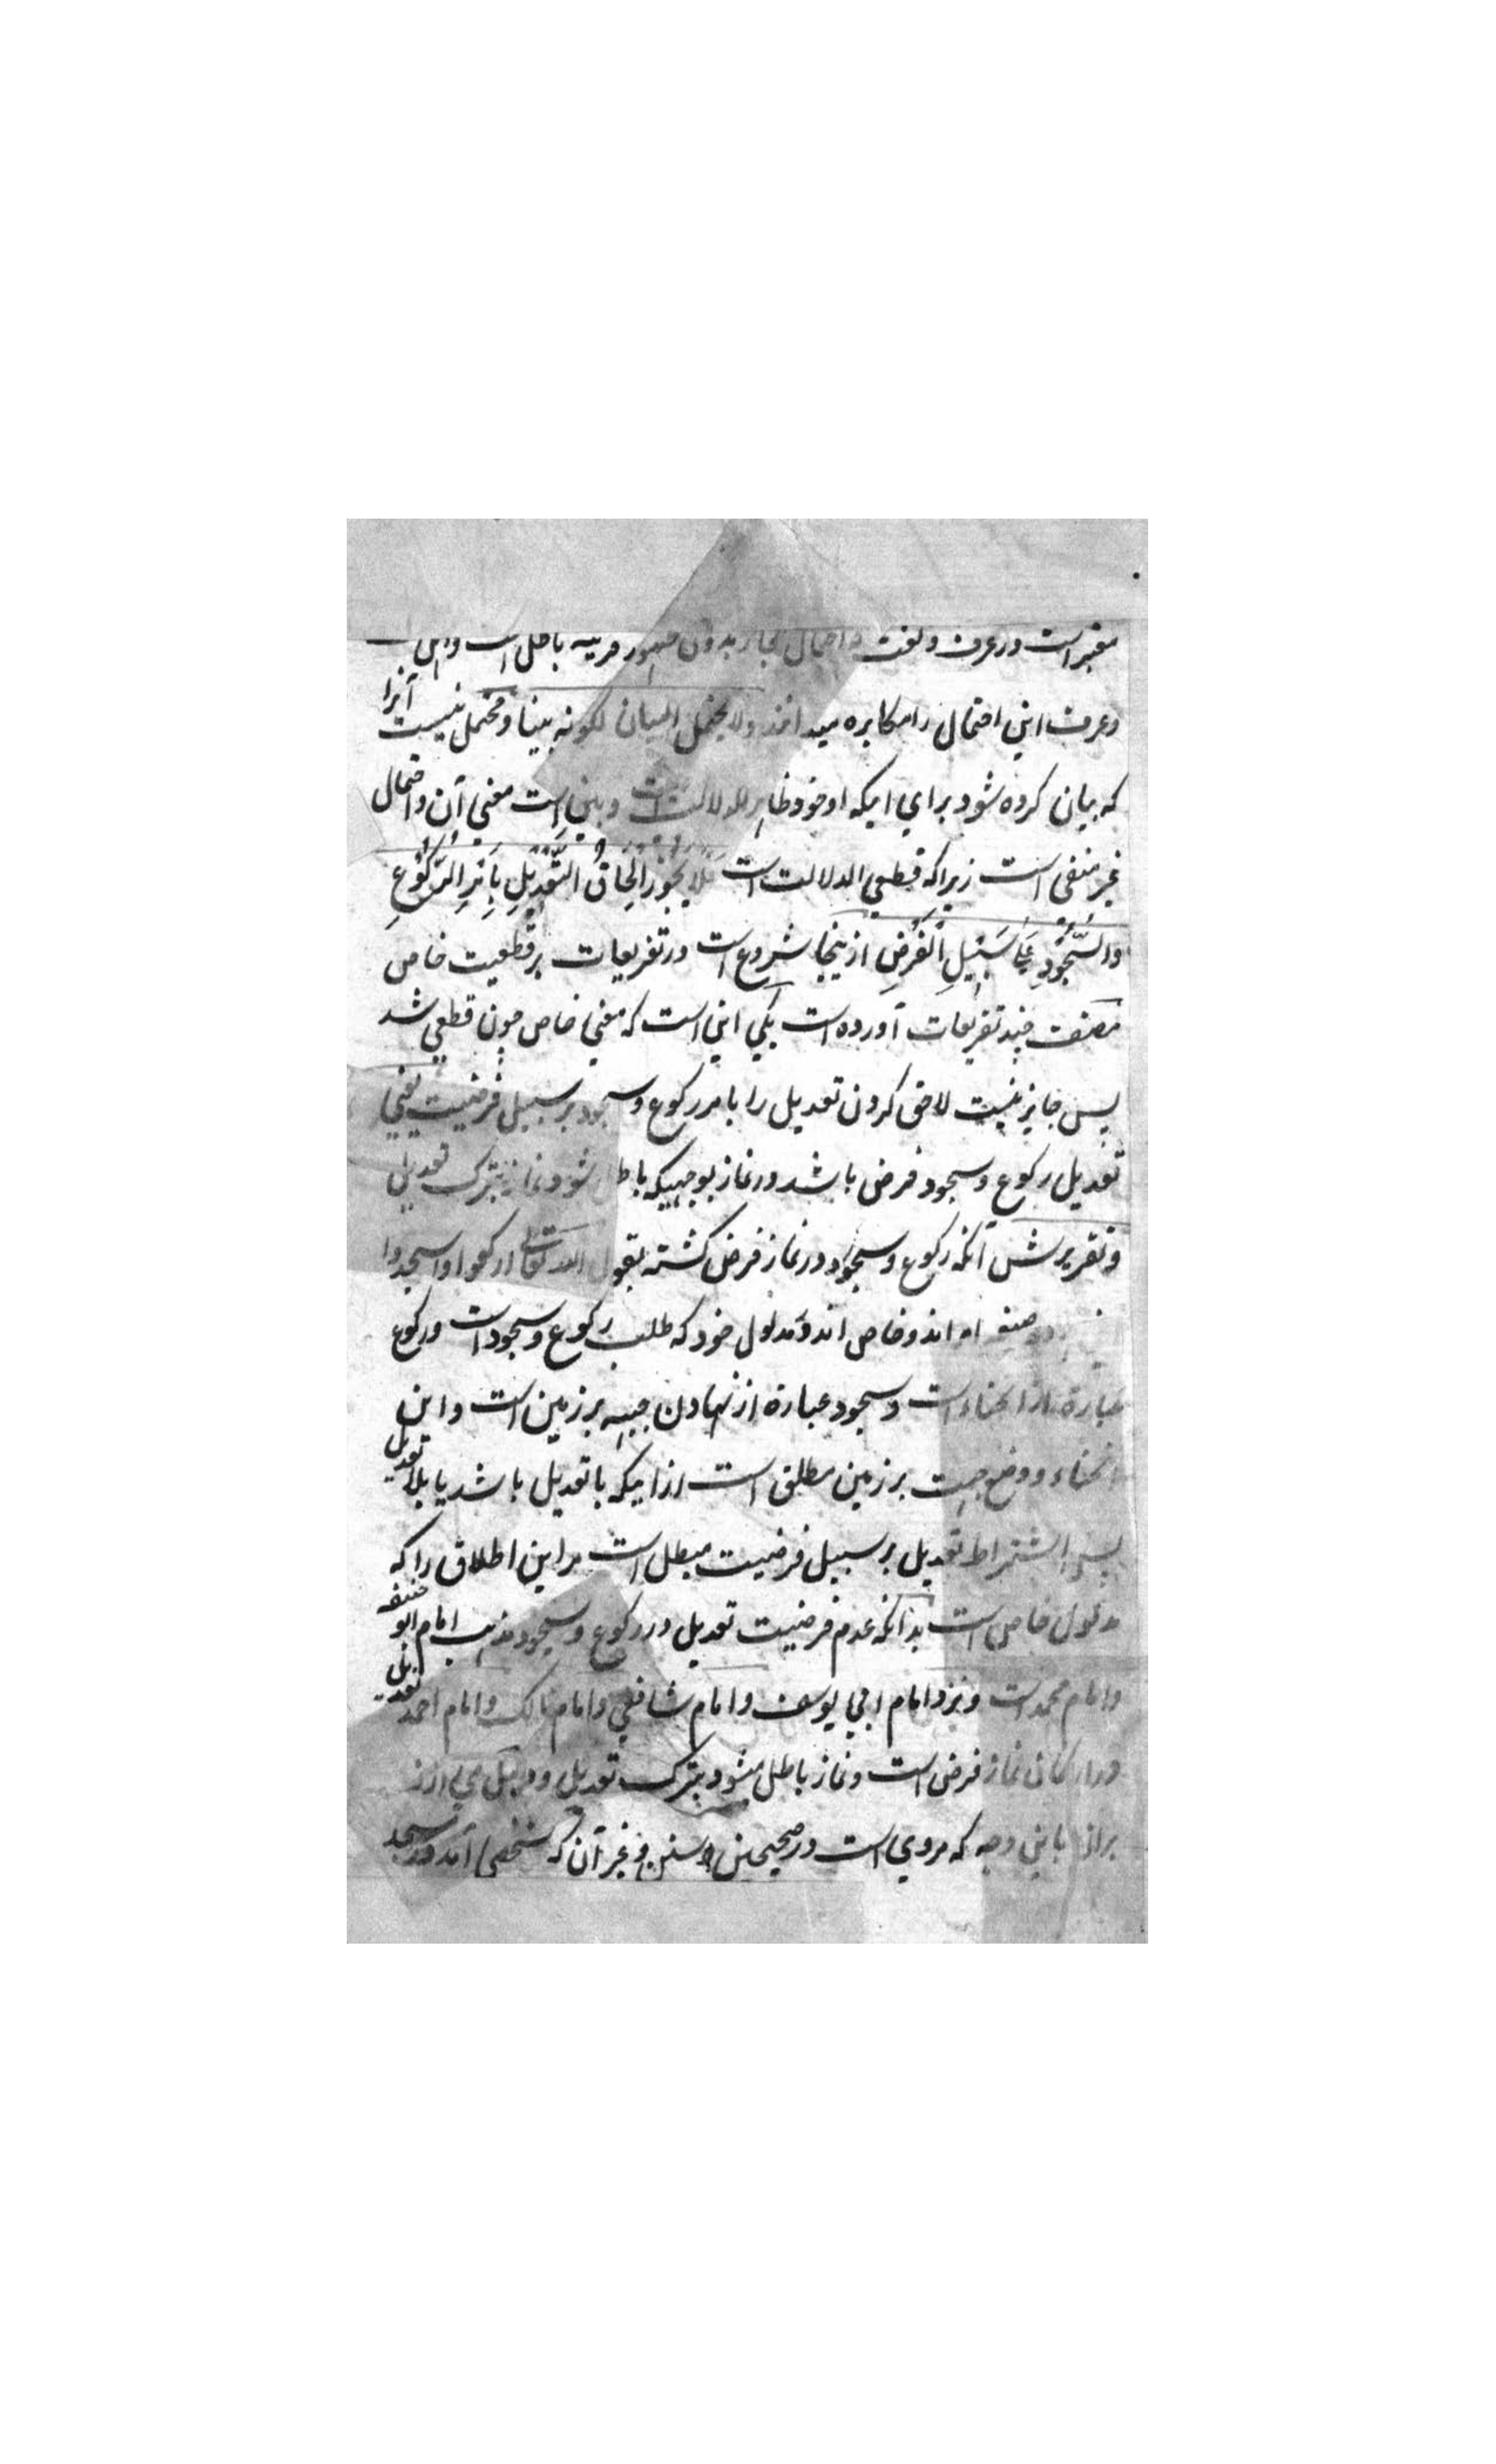 معتبر است در عرف و لغت و احتمال مجاز بدون ظهور قرینه باطل است و اهل
و عرف این احتمال را مکابره میدانند ولا یحتمل البیان لکونه بینا و محتمل نیست آنرا
که بیان کرده شود برای اینکه او خود ظاهر الدلالت است و بین است معنی آن و احتمال
غیر منفی است زیراکه قطعی الدلالت است فَلَا یَجُوزُ اِلْحَاقُ التَّعْدِیْلِ بِاَمْرِ الرُّکُوْعِ
وَالسُّجُوْدِ عَلٰی سَبِیْلِ الْفَرْضِ ازینجا شروع است در تفریعات بر قطعیت خاص
مصنف چند تفریعات آورده است یکی این است که معنی خاص چون قطعی شد
پس جایز نیست لاحق کردن تعدیل را بامر رکوع و سجود بر سبیل فرضیت یعنی
تعدیل رکوع و سجود فرض باشد در نماز بوجهیکه باطل شود نماز بترک تعدیل
و تقریرش آنکه رکوع و سجود در نماز فرض گشته بقول الله تعالی ارکعوا واسجدوا
صیغه امر اند و خاص اند و مدلول خود که طلب رکوع و سجود است و رکوع
عبارة از انحناء است و سجود عبارة از نهادن جبهه بر زمین است و این
انحناء و وضع جبهت بر زمین مطلق است ازاینکه با تعدیل باشد یا بلا تعدیل
پس اشتراط تعدیل بر سبیل فرضیت مبطل است مر این اطلاق را که
مدلول خاص است بدانکه عدم فرضیت تعدیل در رکوع و سجود مذهب امام ابو حنیفه
و امام محمد است و نزد امام ابی یوسف و امام شافعی و امام مالک و امام احمد تعدیل
در ارکان نماز فرض است و نماز باطل میشود بترک تعدیل و دلیل می آرند
براین باین وجه که مروی است در صحیحین و سنن و غیر آن که شخصی آمد در مسجد